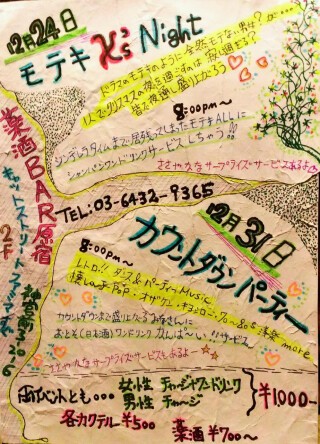 12月24日
モテキ X's Night
ドラマのモテキのように全然モテない男女？が、、、
1人でクリスマスの夜を過ごすのは寂し過ぎる？
皆で夜通し盛り上がろう
8:00pm～
シンデレラタイムまで居残ってしまったモテキALLに
シャンパンワンドリンクサービスしちゃう!!
ささやかなサプライズサービスあるよ
薬酒BAR原宿
キャットストリート
神宮前
2F
TEL:03-6432-9365
12月31日
カウントダウンパーティー
8:00pm～
レトロ!! ダンス&パーティーMusic
懐しのJ-POP・オザケン・キョンキョン・70～80's 洋楽 more
カウントダウンまで盛り上がるみなさんに
おとそ(日本酒)ワンドリンクかんぱ～い!!サービス
ささやかなサプライズサービスもあるよ
両イベントとも…
女性 チャージ&ワンドリンク
男性 チャージ
¥1,000-
各カクテル¥500
薬酒¥700～